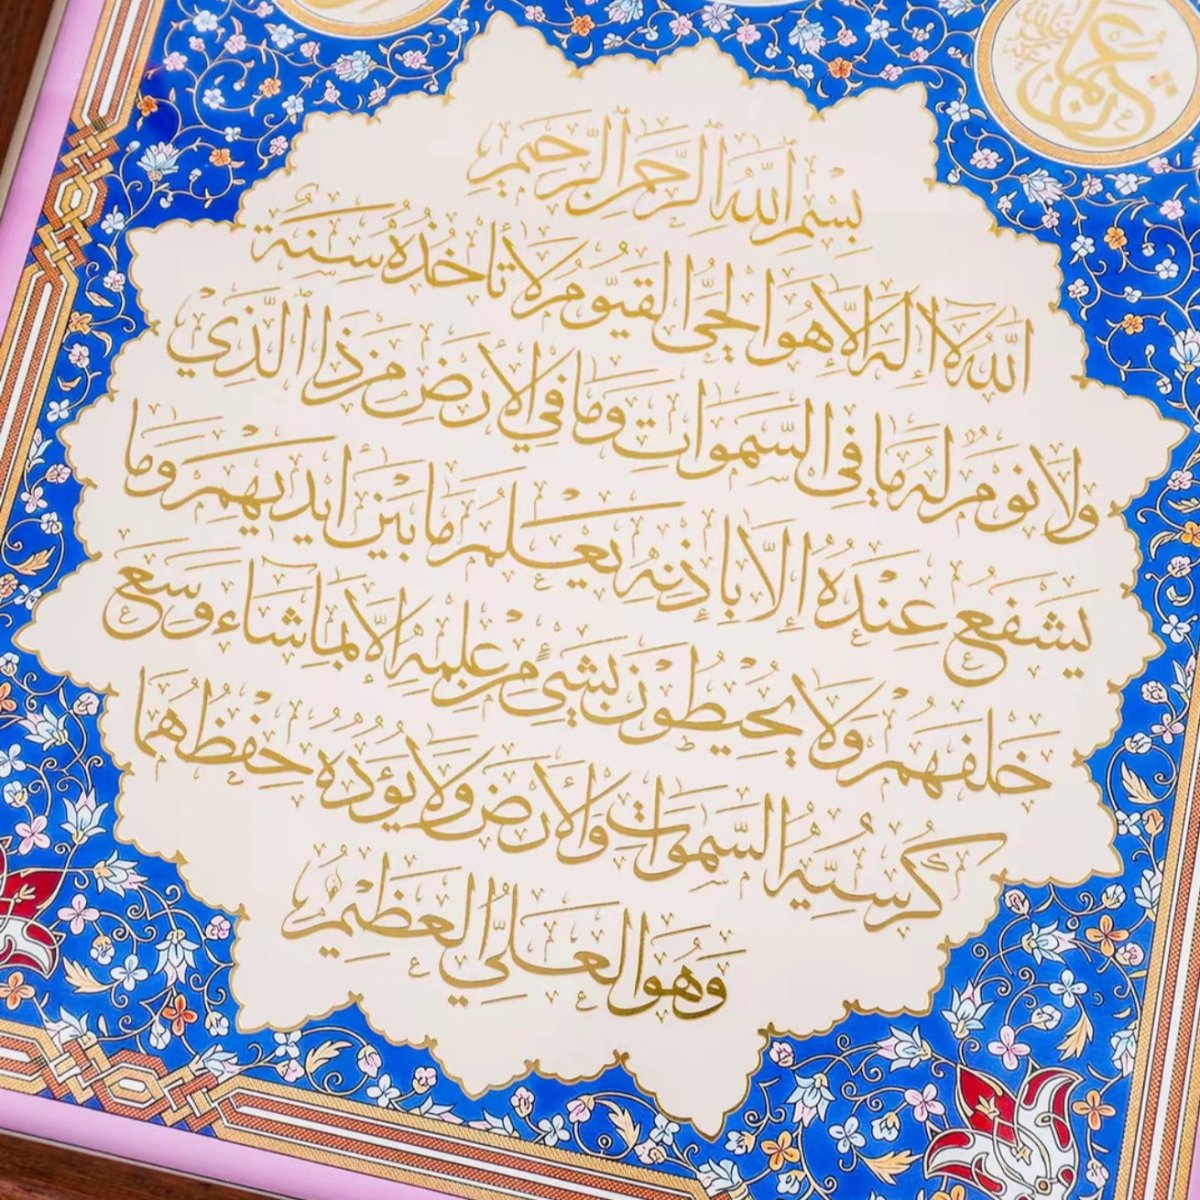 عثمان رضي الله عنه
بسم الله الرحمن الرحيم
الله لا إله إلا هو الحي القيوم لا تأخذه سنة
ولا نوم له ما في السموات وما في الأرض من ذا الذي
يشفع عنده إلا بإذنه يعلم ما بين أيديهم وما
خلفهم ولا يحيطون بشيء من علمه إلا بما شاء وسع
كرسيه السموات والأرض ولا يؤده حفظهما
وهو العلي العظيم